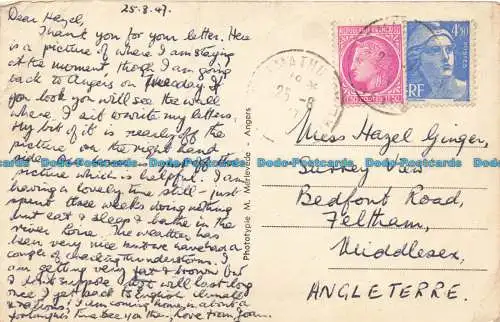 25.8.47.
Dear Hazel,
Thank you for your letter. Here
is a picture of where I am staying
at the moment though I am going
back to Angers on Tuesday. If
you look you will see the wall
where I sit to write my letters.
My bit of it is nearly off the
picture on the right hand
side. off the
picture which is helpful. I am
having a lovely time still – just
spent three weeks doing nothing
but eat & sleep & bathe in the
river Loine. The weather has
been very nice but we have had a
couple of cracking thunderstorms. I
am getting very fat & brown but
I don't suppose that will last long
once I get back to English climate
& rations! I am coming home in about a
fortnight's time. See you then, love from Joan.
Phototypie M. Merlevede - Angers
25 -8
4F50
POSTES
RF
Miss Hazel Ginger,
Surrey View
Bedfont Road,
Feltham,
Middlesex,
ANGLETERRE.
Dodo-Postcards Dodo-Postcards Dodo-Postcards Dodo-Postcards